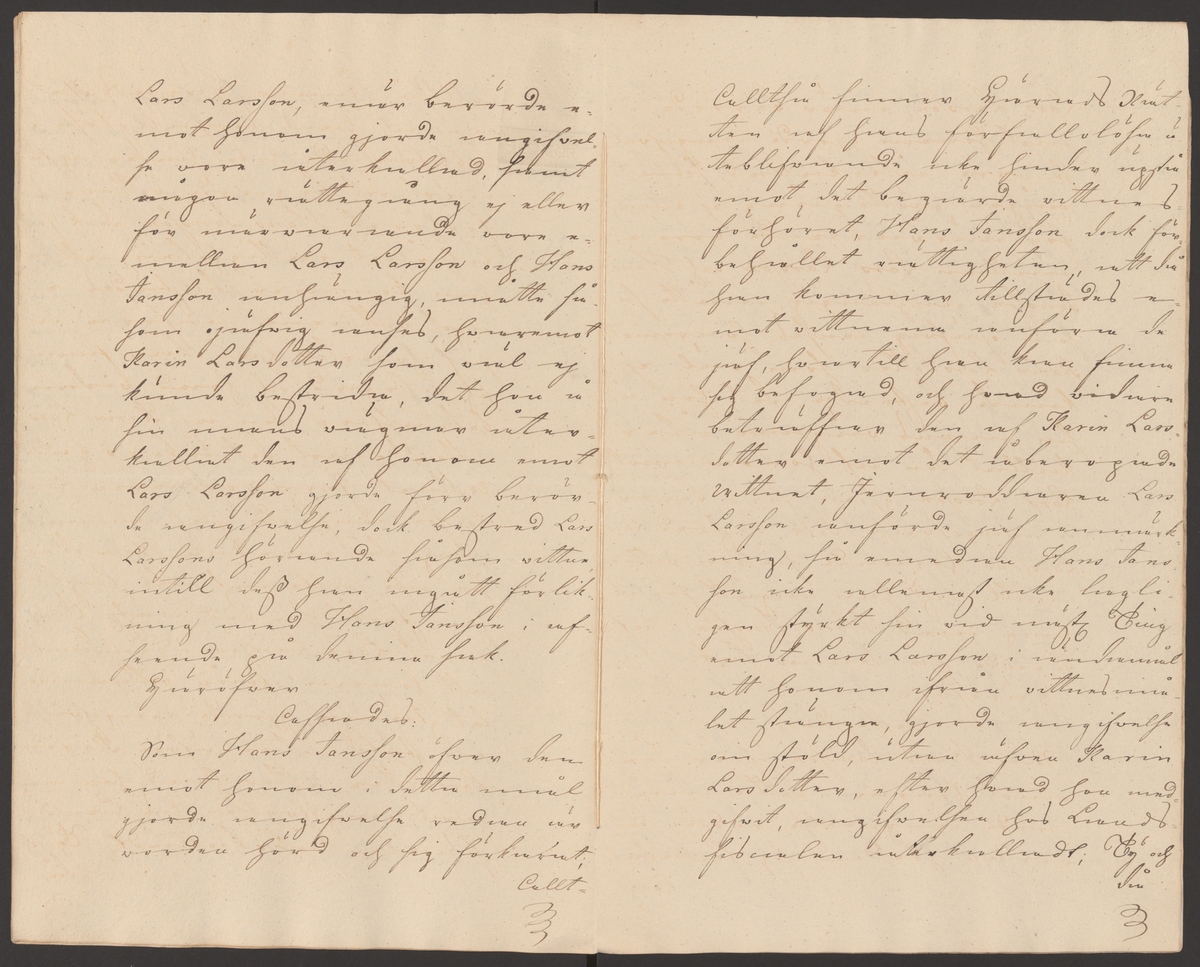 Lars Larsson, enär berörde e-
mot honom gjorde angifvel-
se vore återkallad, samt
någon rättegång ej eller
för närvarande vore e-
mellan Lars Larsson och Hans
Jansson anhängig, måtte så-
som ojäfvig anses, hvaremot
Karin Larsdotter som väl ej
kunde bestrida, det hon å
sin mans vägnar åter-
kallat den af honom emot
Lars Larsson gjorde förr berör-
de angifvelse, dock bestred Lars
Larssons hörande såsom vittne,
intill dess han ingått förlik-
ning med Hans Jansson i af-
seende på denna sak.
Häröfver
Afsades:
Som Hans Jansson öfver den
emot honom i detta mål
gjorde angifvelse redan är
worden hörd och sig förklarat;
Allt-
Alltså finner Härads Rät-
ten af hans förfallolösa u-
teblifvande icke hinder uppstå
emot det begärde vittnes-
förhöret, Hans Jansson dock för-
behållet rättigheten, att då
han kommer tillstädes e-
mot vittnena anföra de
jäf, hvartill han kan finna
sig befogad, och hvad vidare
beträffar den af Karin Lars-
dotter emot det åberopade
Wittnet, Jernvddraren Lars
Larsson anförde jäf anmärk-
ning, så emedan Hans Jans-
son icke allenast icke lagli-
gen styrkt sin vid nästl. Ting
emot Lars Larsson i ändamål
att honom ifrån vittnesmå-
let stänga, gjorde angifvelse
om stöld, utan äfven Karin
Larsdotter, efter hvad hon med-
gifvit, angifvelsen hos Lands
fiscalen återkalladt; Ty och
då